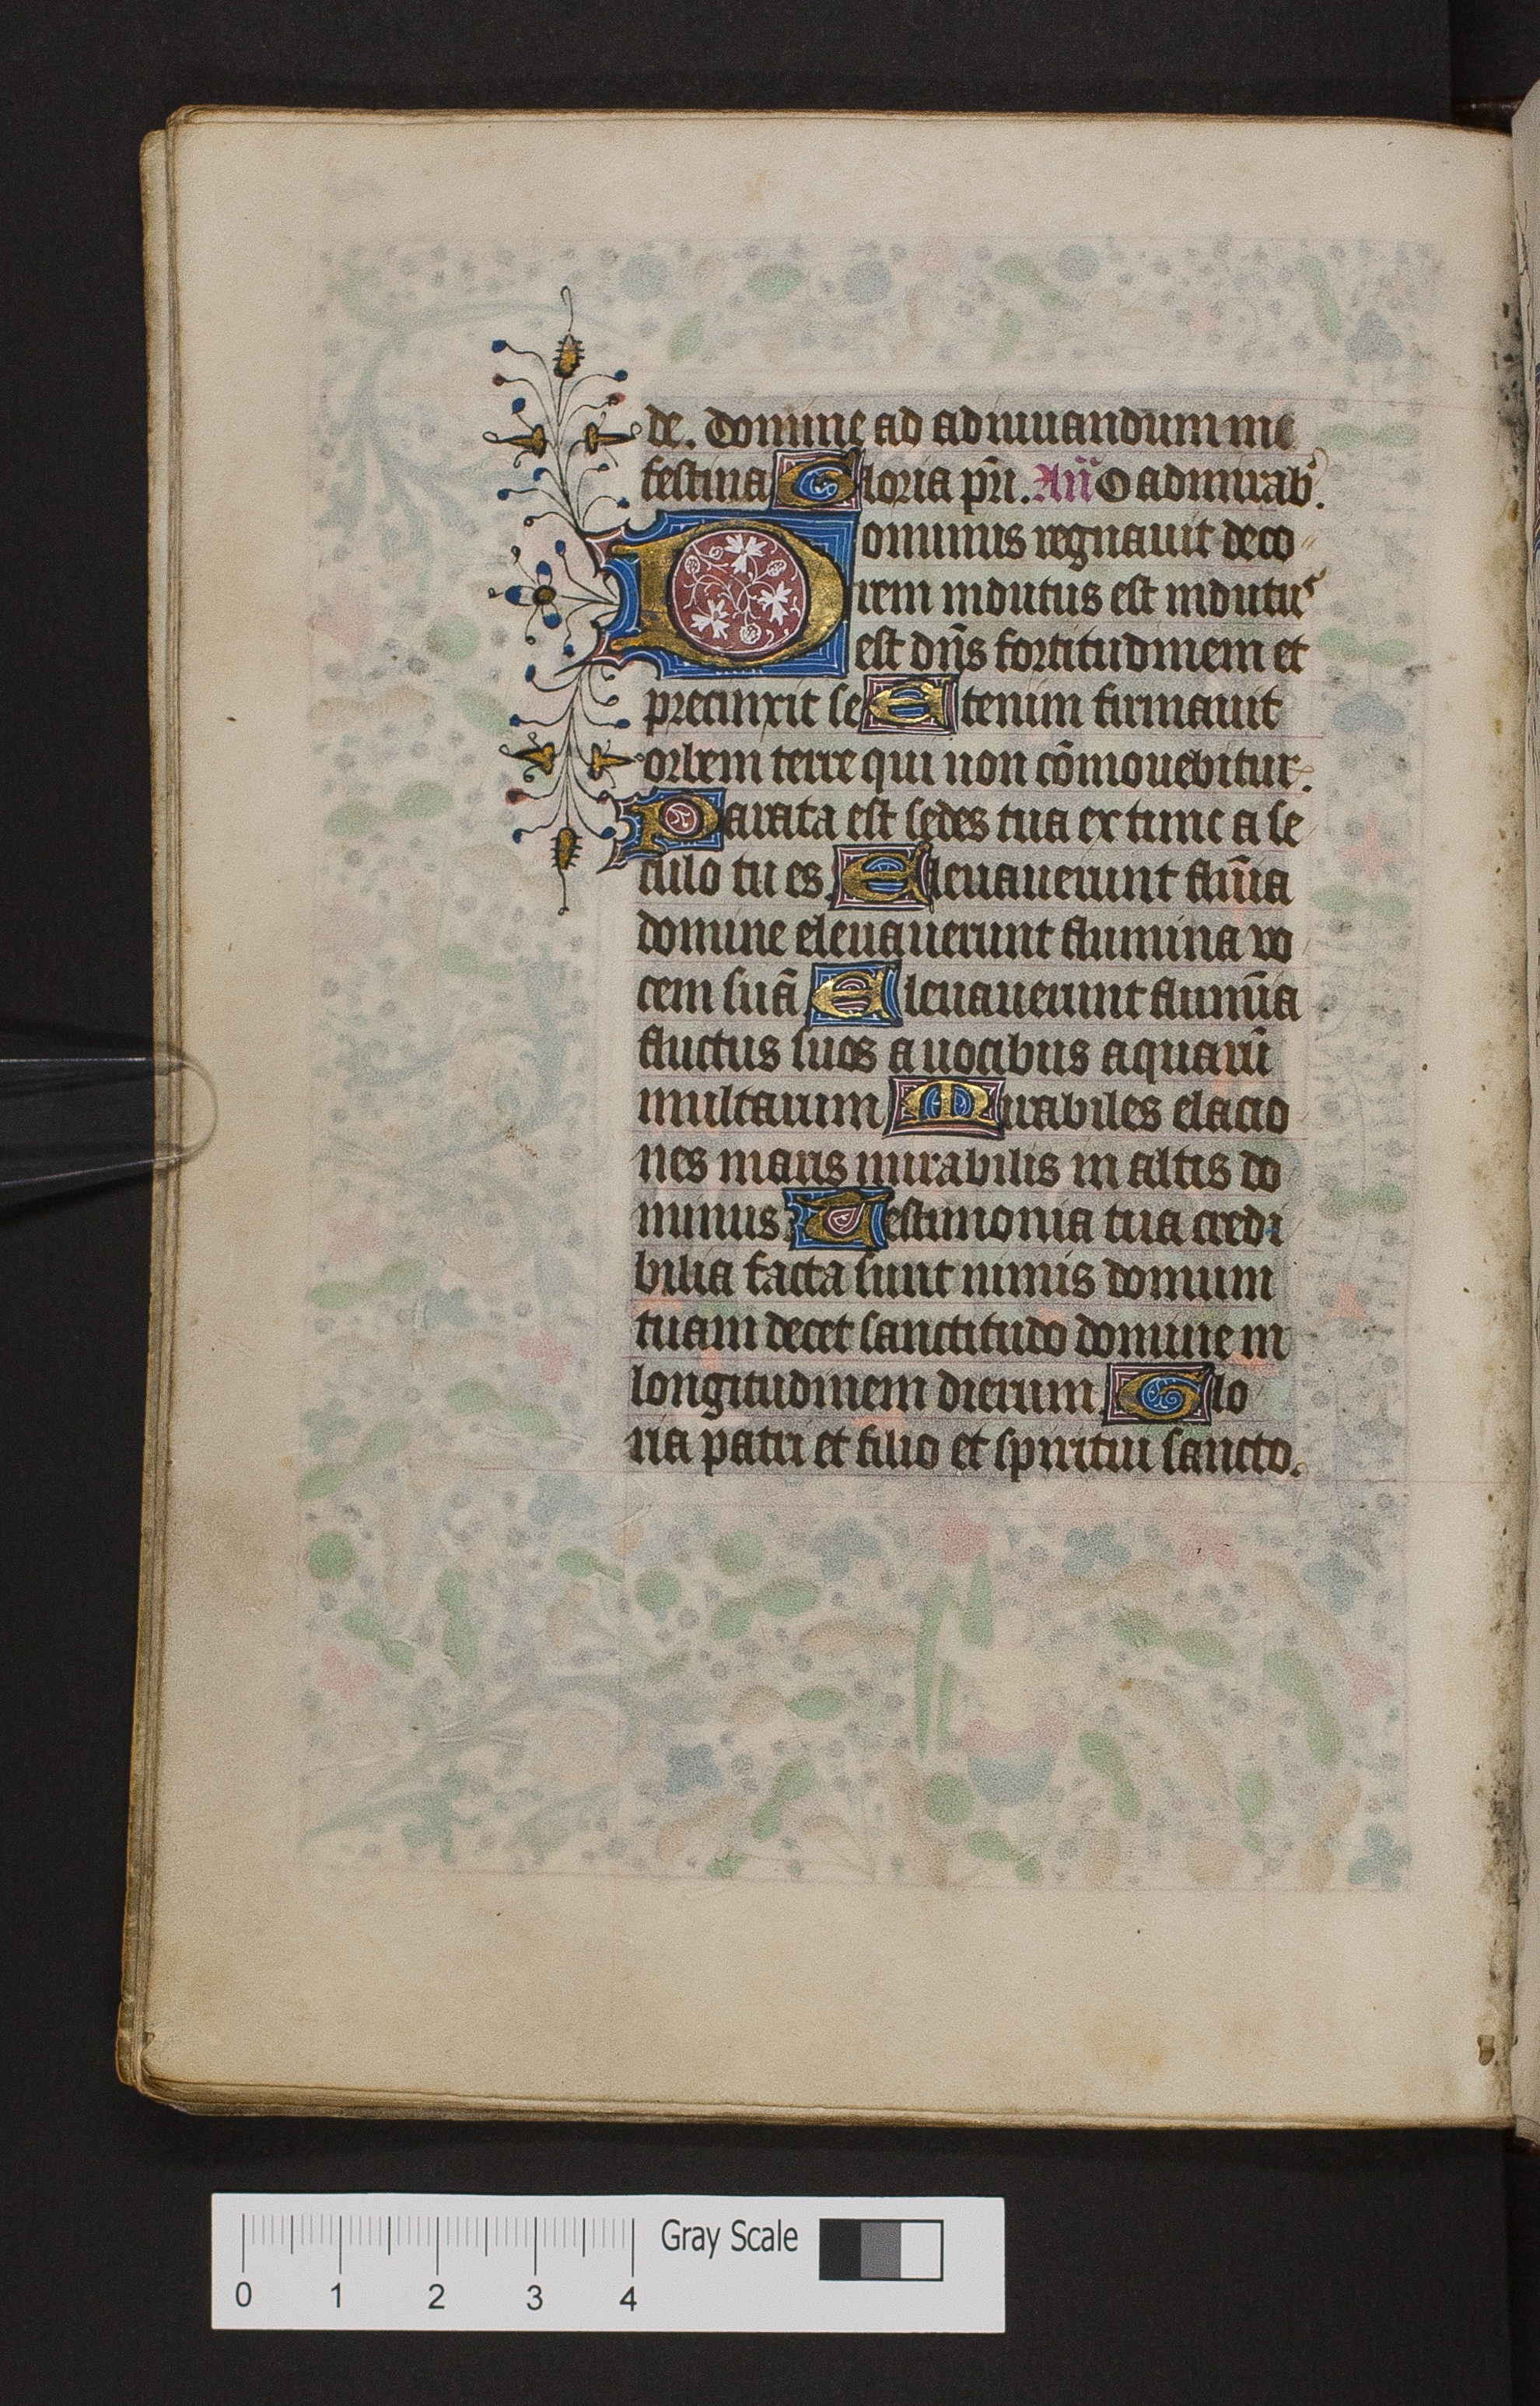 de. Domine ad adiuuandum me
festina Gloria pr̄i. Añ O admirab'.
Dominus regnauit deco
rem indutus est indutus
est dn̄s fortitudinem et
precinxit se Etenim firmauit
orbem terre qui non cōmouebitur.
Parata est sedes tua ex tunc a se
culo tu es. Eleuauerunt flūia
domine eleuauerunt flumina vo
cem suā Eleuauerunt flumīa
fluctus suos a uocibus aquarū
multarum Mirabiles elacio
nes maris mirabilis in altis do
minus. Testimonia tua credi
bilia facta sunt nimis domum
tuam decet sanctitudo domine in
longitudinem dierum. Glo
ria patri et filio et spiritui sancto.
0 1 2 3 4 Gray Scale